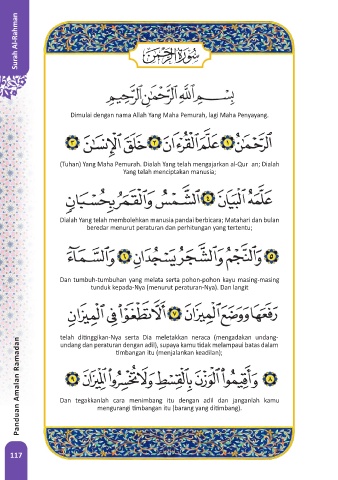 Surah Al-Rahman
سُورَةُ الرَّحْمَٰن
بِسْمِ ٱللَّهِ ٱلرَّحْمَٰنِ ٱلرَّحِيمِ
Dimulai dengan nama Allah Yang Maha Pemurah, lagi Maha Penyayang.
ٱلرَّحْمَٰنُ ١ عَلَّمَ ٱلْقُرْءَانَ ٢ خَلَقَ ٱلْإِنسَٰنَ ٣
(Tuhan) Yang Maha Pemurah. Dialah Yang telah mengajarkan al-Qur an; Dialah
Yang telah menciptakan manusia;
عَلَّمَهُ ٱلْبَيَانَ ٤ ٱلشَّمْسُ وَٱلْقَمَرُ بِحُسْبَانٍ
Dialah Yang telah membolehkan manusia pandai berbicara; Matahari dan bulan
beredar menurut peraturan dan perhitungan yang tertentu;
٥ وَٱلنَّجْمُ وَٱلشَّجَرُ يَسْجُدَانِ ٦ وَٱلسَّمَآءَ
Dan tumbuh-tumbuhan yang melata serta pohon-pohon kayu masing-masing
tunduk kepada-Nya (menurut peraturan-Nya). Dan langit
رَفَعَهَا وَوَضَعَ ٱلْمِيزَانَ ٧ أَلَّا تَطْغَوْا۟ فِى ٱلْمِيزَانِ
telah ditinggikan-Nya serta Dia meletakkan neraca (mengadakan undang-
undang dan peraturan dengan adil), supaya kamu tidak melampaui batas dalam
timbangan itu (menjalankan keadilan);
٨ وَأَقِيمُوا۟ ٱلْوَزْنَ بِٱلْقِسْطِ وَلَا تُخْسِرُوا۟ ٱلْمِيزَانَ ٩
Dan tegakkanlah cara menimbang itu dengan adil dan janganlah kamu
mengurangi timbangan itu (barang yang ditimbang).
Panduan Amalan Ramadan
117